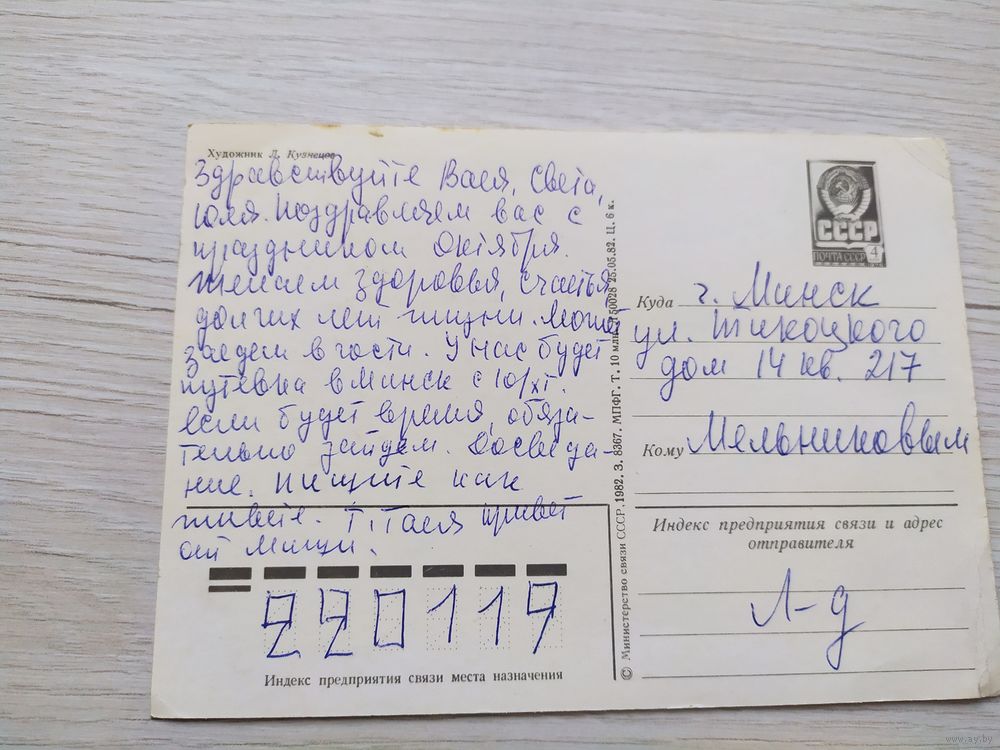 Художник Л. Кузнецов
Здравствуйте Вася, Света,
Юля. Поздравляем вас с
праздником Октября.
Желаем здоровья, счастья
долгих лет жизни. Может
заедем в гости. У нас будет
путевка в Минск с 10/XI.
если будет время, обяза-
тельно зайдем. Досвида-
ние. Пишите как
живете. Т. Тася привет
от Миши.
220119
Индекс предприятия связи места назначения
© Министерство связи СССР. 1982. З. 8367. МПФГ. Т. 10 млн. 150028 25.05.82. Ц. 6 к.
СССР
ПОЧТА СССР 4
Куда г. Минск
ул. Тикоцкого
дом 14 кв. 217
Кому Мельниковым
Индекс предприятия связи и адрес
отправителя
Л-д
www.ay.by